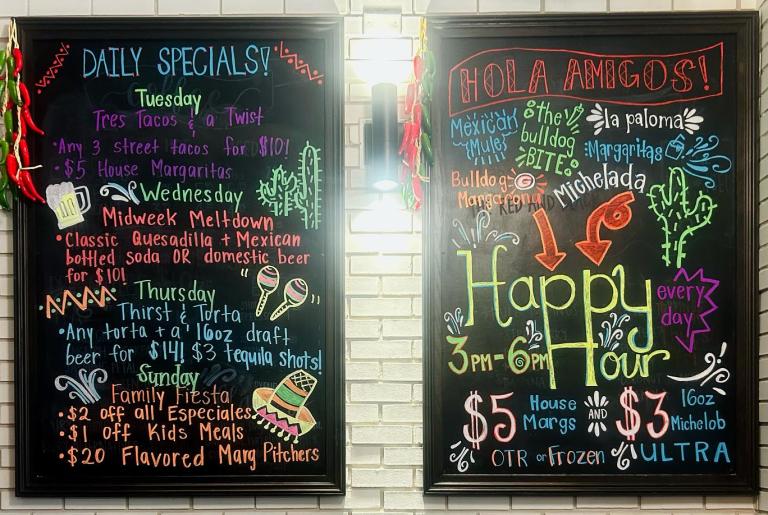 DAILY SPECIALS!
Tuesday
Tres Tacos & a Twist
• Any 3 street tacos for $10!
• $5 House Margaritas
Wednesday
Midweek Meltdown
• Classic Quesadilla + Mexican
bottled soda OR domestic beer
for $10!
Thursday
Thirst & Torta
• Any torta + a 16oz draft
beer for $14! $3 tequila shots!
Sunday
Family Fiesta
• $2 off all Especiales
• $1 off Kids Meals
• $20 Flavored Marg Pitchers
HOLA AMIGOS!
Mexican
Mule
the
bulldog
BITE
la paloma
Margaritas
Bulldog
Margarona
Michelada
Happy
Hour
every
day
3PM-6PM
$5 House
Margs
AND
$3 16oz
Michelob
OTR or Frozen
ULTRA